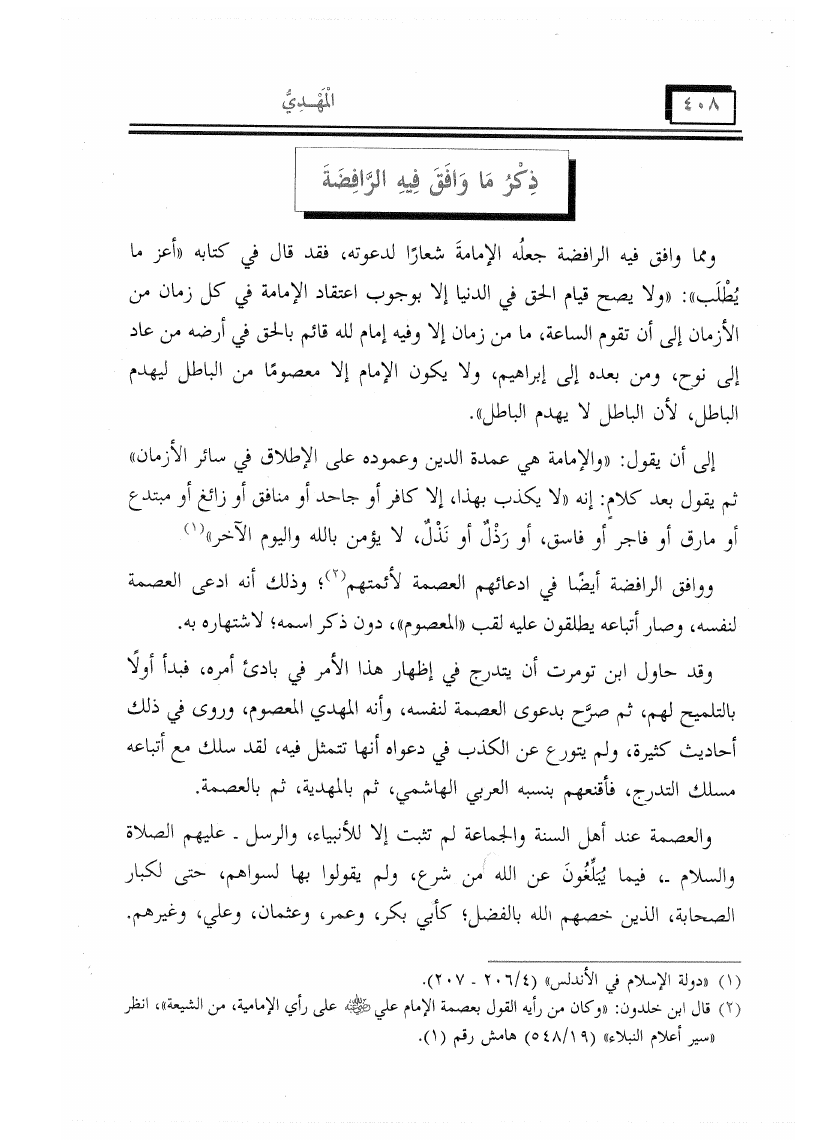 ٤٠٨
الْمَهْـدِيُّ
ذِكْرُ مَا وَافَقَ فِيهِ الرَّافِضَةَ
ومما وافق فيه الرافضة جعلُه الإمامةَ شعارًا لدعوته، فقد قال في كتابه «أعز ما
يُطْلَب»: «ولا يصح قيام الحق في الدنيا إلا بوجوب اعتقاد الإمامة في كل زمان من
الأزمان إلى أن تقوم الساعة، ما من زمان إلا وفيه إمام لله قائم بالحق في أرضه من عاد
إلى نوح، ومن بعده إلى إبراهيم، ولا يكون الإمام إلا معصومًا من الباطل ليهدم
الباطل، لأن الباطل لا يهدم الباطل».
إلى أن يقول: «والإمامة هي عمدة الدين وعموده على الإطلاق في سائر الأزمان»
ثم يقول بعد كلامٍ: إنه «لا يكذب بهذا، إلا كافر أو جاحد أو منافق أو زائغ أو مبتدع
أو مارق أو فاجر أو فاسق، أو رَذْلٌ أو نَذْلٌ، لا يؤمن بالله واليوم الآخر»(١)
ووافق الرافضة أيضًا في ادعائهم العصمة لأئمتهم(٢)؛ وذلك أنه ادعى العصمة
لنفسه، وصار أتباعه يطلقون عليه لقب «المعصوم»، دون ذكر اسمه؛ لاشتهاره به.
وقد حاول ابن تومرت أن يتدرج في إظهار هذا الأمر في بادئ أمره، فبدأ أولًا
بالتلميح لهم، ثم صرَّح بدعوى العصمة لنفسه، وأنه المهدي المعصوم، وروى في ذلك
أحاديث كثيرة، ولم يتورع عن الكذب في دعواه أنها تتمثل فيه، لقد سلك مع أتباعه
مسلك التدرج، فأقنعهم بنسبه العربي الهاشمي، ثم بالمهدية، ثم بالعصمة.
والعصمة عند أهل السنة والجماعة لم تثبت إلا للأنبياء، والرسل ـ عليهم الصلاة
والسلام ـ، فيما يُبَلِّغُونَ عن الله من شرع، ولم يقولوا بها لسواهم، حتى لكبار
الصحابة، الذين خصهم الله بالفضل؛ كأبي بكر، وعمر، وعثمان، وعلي، وغيرهم.
(١) «دولة الإسلام في الأندلس» (٢٠٦/٤ ـ ٢٠٧).
(٢) قال ابن خلدون: «وكان من رأيه القول بعصمة الإمام علي ﷺ على رأي الإمامية، من الشيعة»، انظر
«سير أعلام النبلاء» (٥٤٨/١٩) هامش رقم (١).